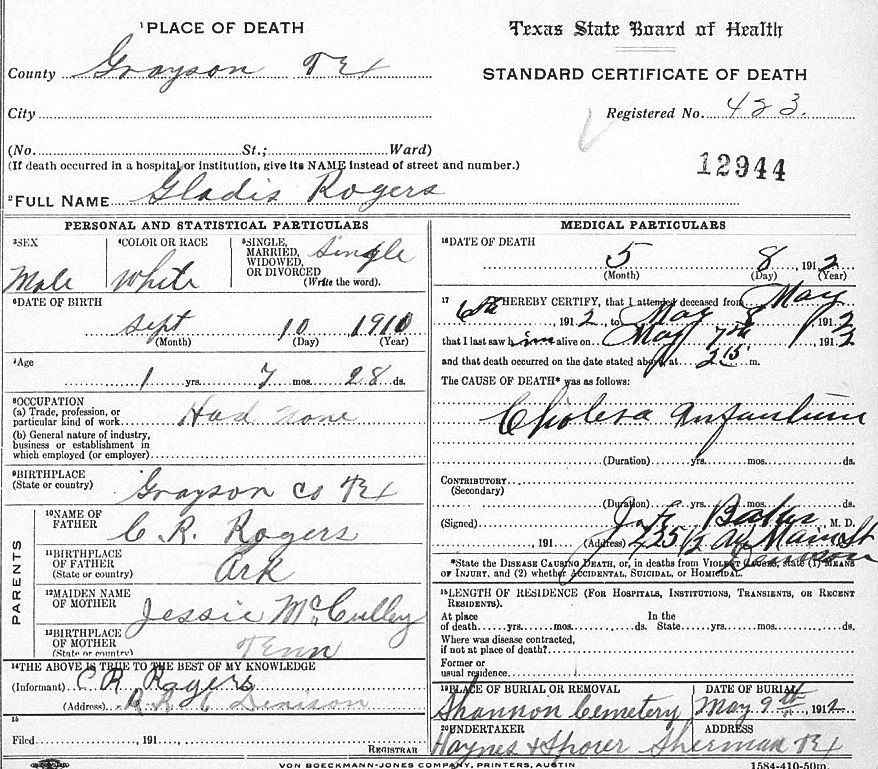 ¹PLACE OF DEATH
Texas State Board of Health
County Grayson Tex
STANDARD CERTIFICATE OF DEATH
City
Registered No. 423.
(No. St.; Ward)
(If death occurred in a hospital or institution, give its NAME instead of street and number.)
12944
²FULL NAME Gladis Rogers
PERSONAL AND STATISTICAL PARTICULARS
³SEX Male
⁴COLOR OR RACE White
⁵SINGLE, MARRIED, WIDOWED, OR DIVORCED Single
(Write the word).
⁶DATE OF BIRTH
Sept 10 1910
(Month) (Day) (Year)
⁷Age
1 yrs. 7 mos. 28 ds.
⁸OCCUPATION
(a) Trade, profession, or
particular kind of work Had none
(b) General nature of industry,
business or establishment in
which employed (or employer)
⁹BIRTHPLACE
(State or country) Grayson Co Tex
PARENTS
¹⁰NAME OF
FATHER C. R. Rogers
¹¹BIRTHPLACE
OF FATHER
(State or country) Ark
¹²MAIDEN NAME
OF MOTHER Jessie McCulley
¹³BIRTHPLACE
OF MOTHER
(State or country) Tenn
¹⁴THE ABOVE IS TRUE TO THE BEST OF MY KNOWLEDGE
(Informant) C R Rogers
(Address) Denison
15
Filed , 191
REGISTRAR
MEDICAL PARTICULARS
¹⁶DATE OF DEATH
5 8, 1912
(Month) (Day) (Year)
17 I HEREBY CERTIFY, that I attended deceased from May
6th, 1912, to May 8, 1912
that I last saw him alive on May 7th, 1912
and that death occurred on the date stated above, at 215 m.
The CAUSE OF DEATH* was as follows:
Cholera Infantum
(Duration) yrs. mos. ds.
CONTRIBUTORY
(Secondary)
(Duration) yrs. mos. ds.
(Signed) , M. D.
, 191 (Address) 225½ W Main St
Denison
*State the DISEASE CAUSING DEATH, or, in deaths from VIOLENT CAUSES, state (1) MEANS
OF INJURY, and (2) whether ACCIDENTAL, SUICIDAL, or HOMICIDAL.
¹⁸LENGTH OF RESIDENCE (FOR HOSPITALS, INSTITUTIONS, TRANSIENTS, OR RECENT
RESIDENTS).
At place In the
of death yrs. mos. ds. State yrs. mos. ds.
Where was disease contracted,
if not at place of death?
Former or
usual residence
¹⁹PLACE OF BURIAL OR REMOVAL DATE OF BURIAL
Shannon Cemetery May 9th, 1912
²⁰UNDERTAKER ADDRESS
Haynes & Sporer Sherman Tex
VON BOECKMANN-JONES COMPANY, PRINTERS, AUSTIN
1584-410-50m.